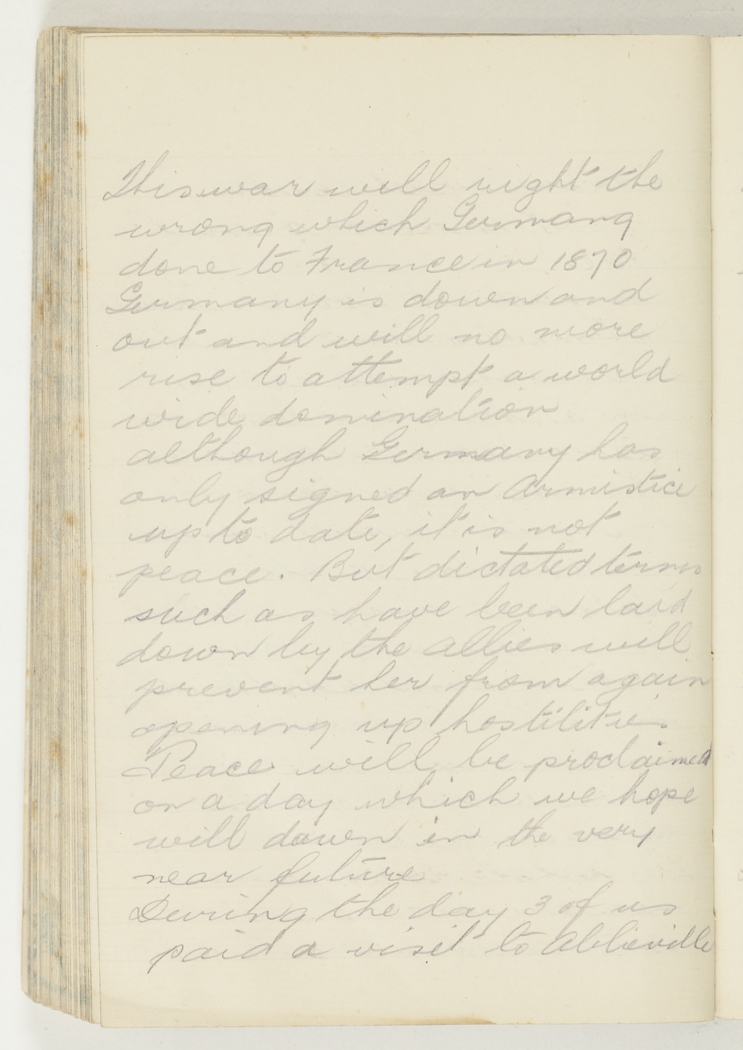 This war will right the
wrong which Germany
done to France in 1870
Germany is down and
out and will no more
rise to attempt a world
wide domination
although Germany has
only signed an Armistice
up to date, it is not
peace. But dictated terms
such as have been laid
down by the allies will
prevent her from again
opening up hostilities
Peace will be proclaimed
on a day which we hope
will dawn in the very
near future
During the day 3 of us
paid a visit to Abbieville